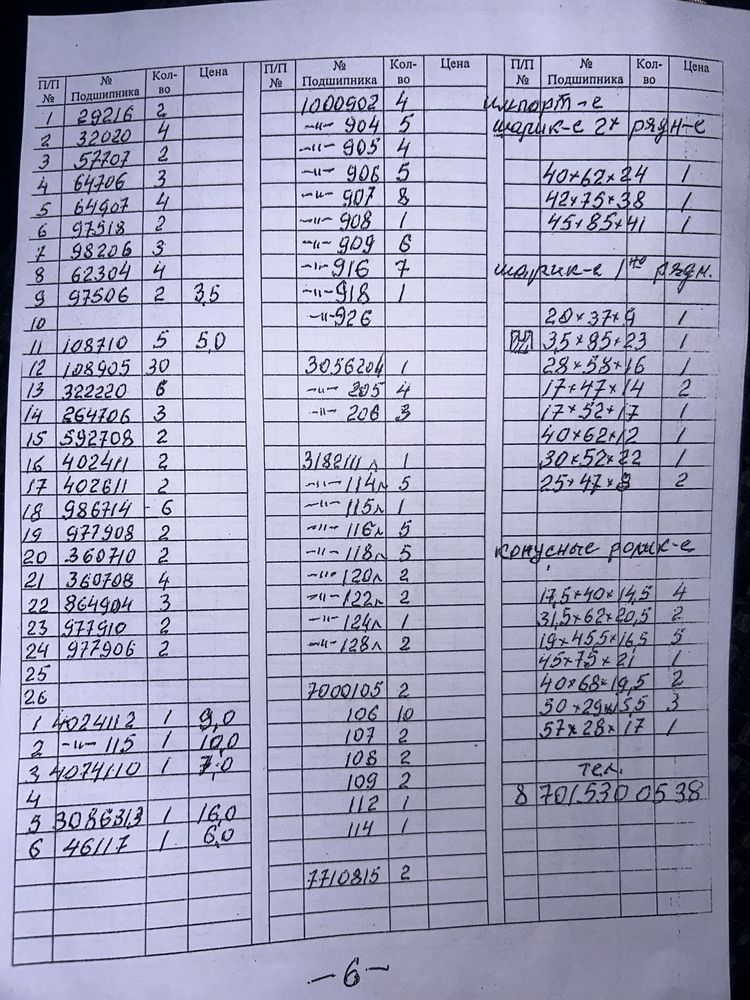 П/П № № Подшипника Кол-во Цена
1 29216 2
2 32020 4
3 57707 2
4 64706 3
5 64907 4
6 97518 2
7 98206 3
8 62304 4
9 97506 2 3,5
10
11 108710 5 5,0
12 108905 30
13 322220 6
14 264706 3
15 592708 2
16 402411 2
17 402611 2
18 986714 6
19 977908 2
20 360710 2
21 360708 4
22 864904 3
23 977910 2
24 977906 2
25
26
1 4024112 1 9,0
2 -"- 115 1 10,0
3 4074110 1 7,0
4
5 3086313 1 16,0
6 46117 1 6,0
П/П № № Подшипника Кол-во Цена
1000902 4
-"- 904 5
-"- 905 4
-"- 906 5
-"- 907 8
-"- 908 1
-"- 909 6
-"- 916 7
-"- 918 1
-"- 926
3056204 1
-"- 205 4
-"- 206 3
3182111л 1
-"- 114л 5
-"- 115л 1
-"- 116л 5
-"- 118л 5
-"- 120л 2
-"- 122л 2
-"- 124л 1
-"- 128л 2
7000105 2
106 10
107 2
108 2
109 2
112 1
114 1
7710815 2
П/П № № Подшипника Кол-во Цена
импорт-е
шарик-е 2х рядн-е
40×62×24 1
42×75×38 1
45×85×41 1
шарик-е 1но рядн.
20×37×9 1
35×85×23 1
28×58×16 1
17×47×14 2
17×52×17 1
40×62×12 1
30×52×22 1
25×47×8 2
конусные ролик-е
17,5×40×14,5 4
31,5×62×20,5 2
19×45,5×16,5 5
45×75×21 1
40×68×19,5 2
50×29×15,5 3
57×28×17 1
тел.
8 701 530 05 38
-6-